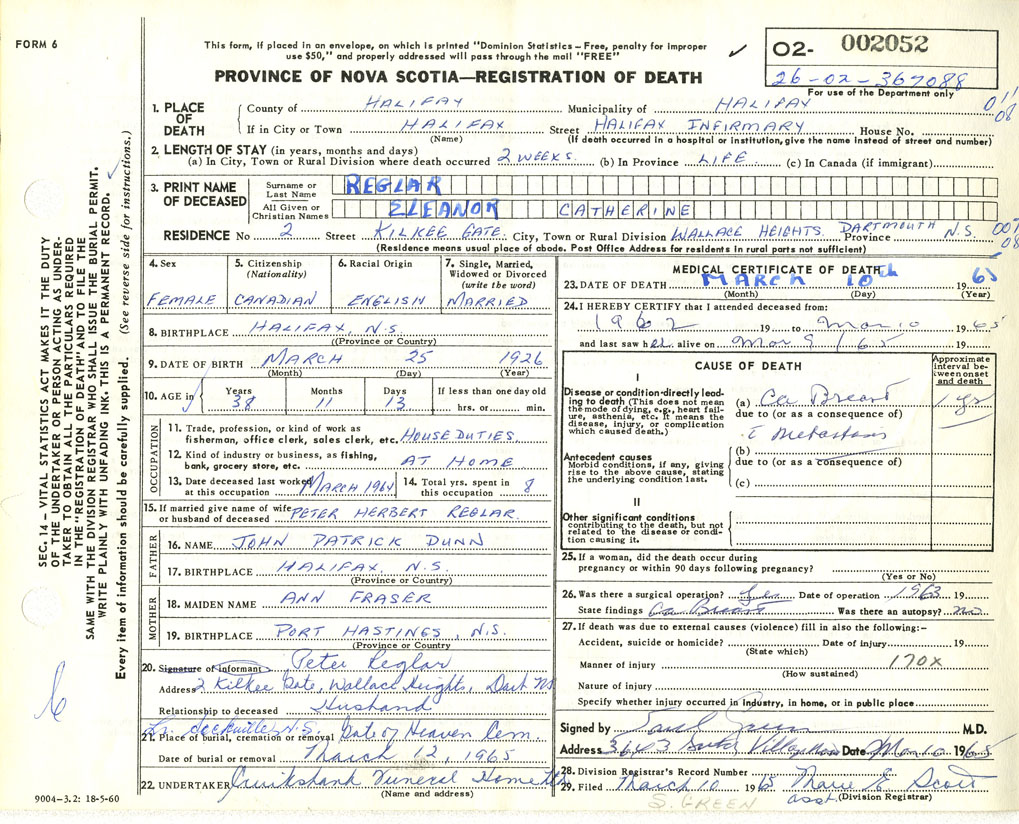 FORM 6
This form, if placed in an envelope, on which is printed "Dominion Statistics – Free, penalty for improper
use $50," and properly addressed will pass through the mail "FREE"
✓
PROVINCE OF NOVA SCOTIA—REGISTRATION OF DEATH
O2- 002052
26-02-367088
For use of the Department only
011
08
1. PLACE OF DEATH
County of HALIFAX Municipality of HALIFAX
If in City or Town HALIFAX Street HALIFAX INFIRMARY House No.
(Name) (If death occurred in a hospital or institution, give the name instead of street and number)
2. LENGTH OF STAY (in years, months and days)
(a) In City, Town or Rural Division where death occurred 2 WEEKS (b) In Province LIFE (c) In Canada (if immigrant)
3. PRINT NAME OF DECEASED
Surname or Last Name REGLAR
All Given or Christian Names ELEANOR CATHERINE
RESIDENCE No 2 Street KILKEE GATE. City, Town or Rural Division WALLACE HEIGHTS. DARTMOUTH Province N.S.
(Residence means usual place of abode. Post Office Address for residents in rural parts not sufficient)
4. Sex
FEMALE
5. Citizenship (Nationality)
CANADIAN
6. Racial Origin
ENGLISH
7. Single, Married, Widowed or Divorced (write the word)
MARRIED
8. BIRTHPLACE HALIFAX, N.S
(Province or Country)
9. DATE OF BIRTH MARCH 25 1926
(Month) (Day) (Year)
10. AGE in Years 38 Months 11 Days 13 If less than one day old hrs. or min.
OCCUPATION
11. Trade, profession, or kind of work as fisherman, office clerk, sales clerk, etc. HOUSE DUTIES.
12. Kind of industry or business, as fishing, bank, grocery store, etc. AT HOME
13. Date deceased last worked at this occupation MARCH 1964
14. Total yrs. spent in this occupation 8
15. If married give name of wife or husband of deceased PETER HERBERT REGLAR.
FATHER
16. NAME JOHN PATRICK DUNN
17. BIRTHPLACE HALIFAX, N.S.
(Province or Country)
MOTHER
18. MAIDEN NAME ANN FRASER
19. BIRTHPLACE PORT HASTINGS, N.S.
(Province or Country)
20. Signature of informant Peter Reglar
Address 2 Kilkee Gate, Wallace Heights, Dart NS
Relationship to deceased Husband
Lr. Sackville, N.S.
21. Place of burial, cremation or removal Gate of Heaven Cem.
Date of burial or removal March 12, 1965
22. UNDERTAKER Cruikshank Funeral Home
(Name and address)
MEDICAL CERTIFICATE OF DEATH
23. DATE OF DEATH MARCH 10th 1965
(Month) (Day) (Year)
24. I HEREBY CERTIFY that I attended deceased from:
1962 19 to Mar 10 1965
and last saw her alive on Mar 9 / 65 19
CAUSE OF DEATH
Approximate interval between onset and death
I
Disease or condition directly leading to death (This does not mean the mode of dying, e.g., heart failure, asthenia, etc. It means the disease, injury, or complication which caused death.)
(a) Ca Breast
due to (or as a consequence of)
c̄ Metastasis
Antecedent causes
Morbid conditions, if any, giving rise to the above cause, stating the underlying condition last.
(b)
due to (or as a consequence of)
(c)
II
Other significant conditions contributing to the death, but not related to the disease or condition causing it.
25. If a woman, did the death occur during pregnancy or within 90 days following pregnancy?
(Yes or No)
26. Was there a surgical operation? Yes Date of operation 1963 19
State findings Ca Breast Was there an autopsy? no
27. If death was due to external causes (violence) fill in also the following:–
Accident, suicide or homicide? Date of injury 19
(State which)
Manner of injury 170X
(How sustained)
Nature of injury
Specify whether injury occurred in industry, in home, or in public place
Signed by M.D.
Address Date Mar 10 1965
28. Division Registrar's Record Number
29. Filed March 10 1965 Marie E Scott
asst. (Division Registrar)
S. GREEN
SEC. 14 – VITAL STATISTICS ACT MAKES IT THE DUTY
OF THE UNDERTAKER OR PERSON ACTING AS UNDER-
TAKER TO OBTAIN ALL THE PARTICULARS REQUIRED
IN THE "REGISTRATION OF DEATH" AND TO FILE THE
SAME WITH THE DIVISION REGISTRAR WHO SHALL ISSUE THE BURIAL PERMIT.
WRITE PLAINLY WITH UNFADING INK. THIS IS A PERMANENT RECORD.
Every item of information should be carefully supplied. (See reverse side for instructions.)
6
9004–3.2: 18-5-60